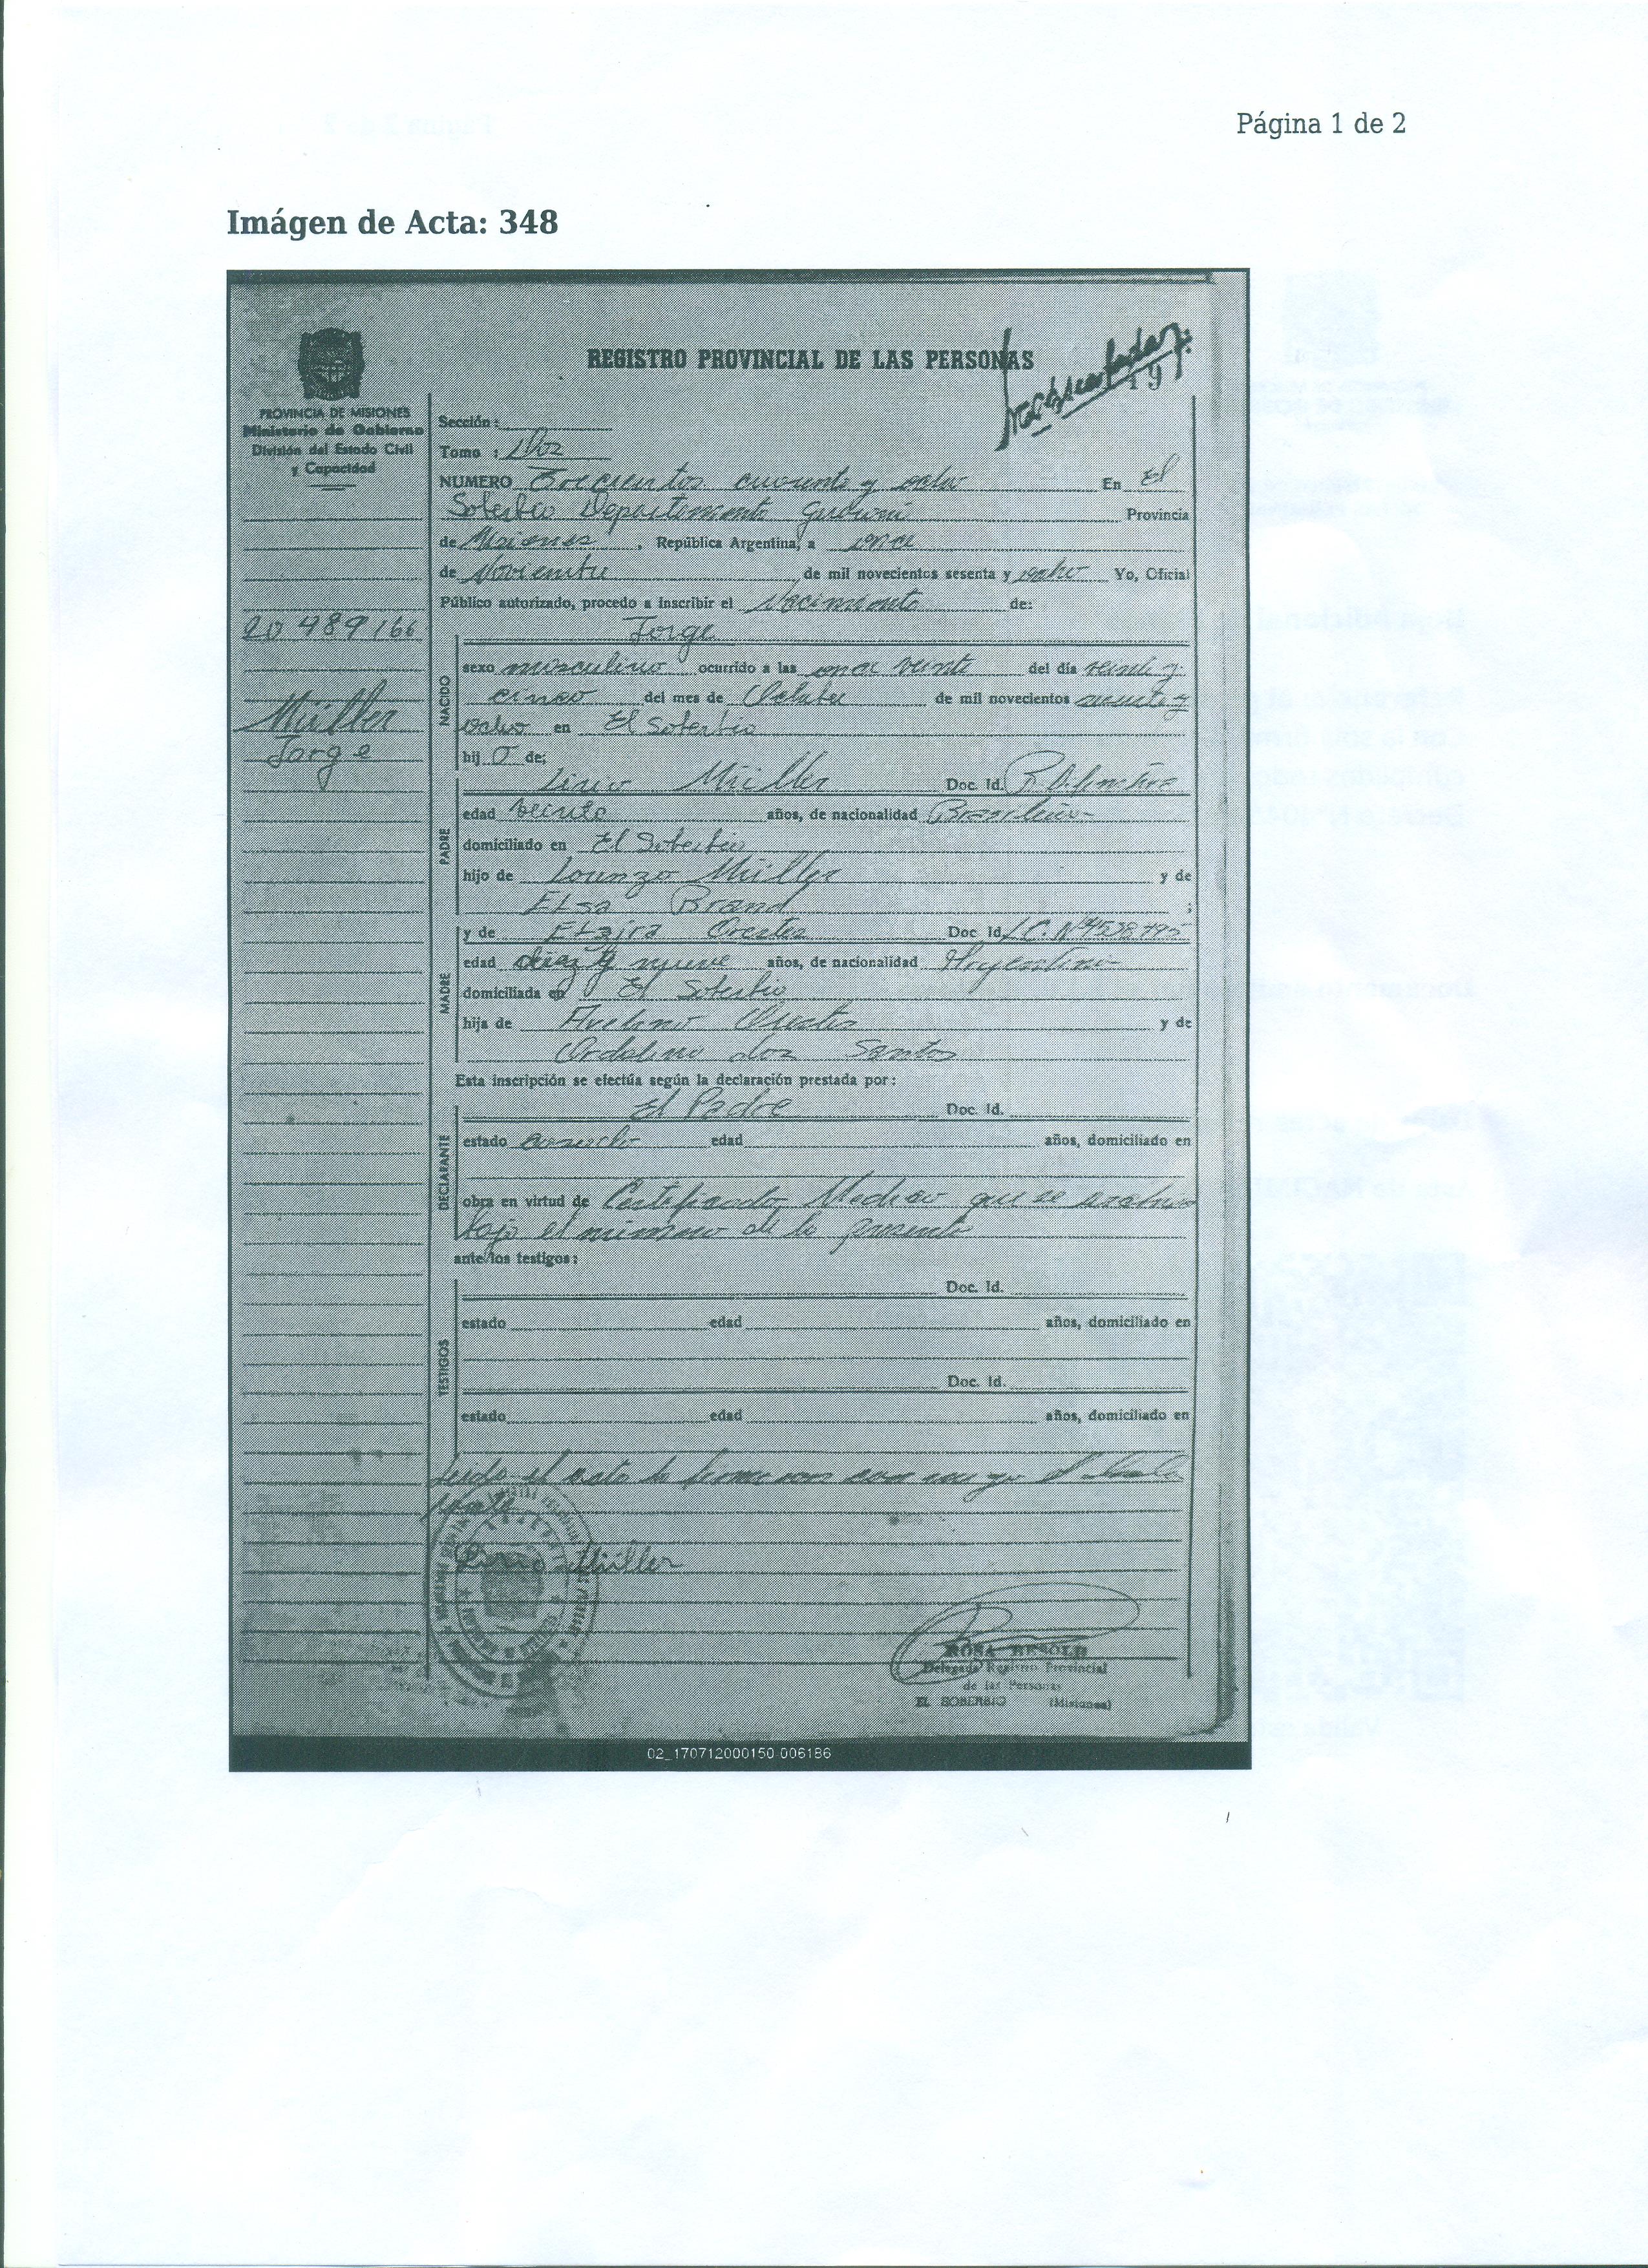 Página 1 de 2
Imágen de Acta: 348
REGISTRO PROVINCIAL DE LAS PERSONAS
PROVINCIA DE MISIONES
Ministerio de Gobierno
División del Estado Civil
y Capacidad
Sección:
Tomo : Dos
NUMERO Trescientos cuarenta y ocho En El
Soberbio Departamento Guaraní Provincia
de Misiones , República Argentina, a once
de Noviembre de mil novecientos sesenta y ocho Yo, Oficial
Público autorizado, procedo a inscribir el Nacimiento de:
Jorge
20 489 166
Müller
Jorge
NACIDO
sexo masculino ocurrido a las once veinte del día veinte y
cinco del mes de Octubre de mil novecientos sesenta y
ocho en El Soberbio
hij o de;
PADRE
Lino Müller Doc. Id.
edad veinte años, de nacionalidad Brasileño
domiciliado en El Soberbio
hijo de Lorenzo Müller y de
Elsa Brand ;
MADRE
y de Elzira Orestes Doc Id. L.C. Nº
edad diez y nueve años, de nacionalidad Argentina
domiciliada en El Soberbio
hija de Avelino Orestes y de
Ordalina dos Santos
Esta inscripción se efectúa según la declaración prestada por:
DECLARANTE
El Padre Doc. Id.
estado edad años, domiciliado en
obra en virtud de Certificado Medico que se archiva
bajo el mismo de la presente
ante los testigos:
TESTIGOS
Doc. Id.
estado edad años, domiciliado en
Doc. Id.
estado edad años, domiciliado en
Leido el acta la firma con
Lino Müller
ROSA BESOLD
Delegada Registro Provincial
de las Personas
EL SOBERBIO (Misiones)
02_170712000150-006186